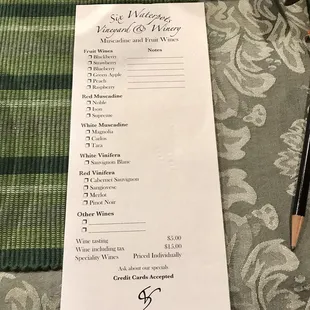 Six Waterpots
Vineyard & Winery
Muscadine and Fruit Wines
Fruit Wines Notes
Blackberry
Strawberry
Blueberry
Green Apple
Peach
Raspberry
Red Muscadine
Noble
Ison
Supreme
White Muscadine
Magnolia
Carlos
Tara
White Vinifera
Sauvignon Blanc
Red Vinifera
Cabernet Sauvignon
Sangiovese
Merlot
Pinot Noir
Other Wines
Wine tasting $5.00
Wine including tax $15.00
Speciality Wines Priced Individually
Ask about our specials
Credit Cards Accepted